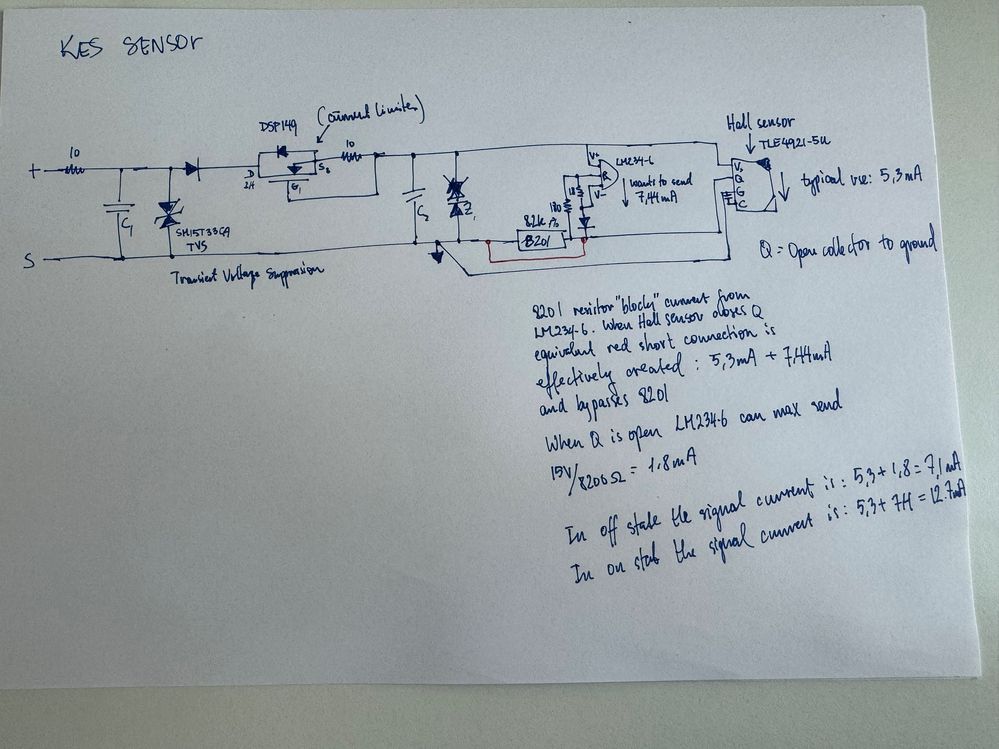 KES SENSOR
DSP149
(current limiter)
Hall sensor
TLE4921-5U
+
10
10
D
S
G
LM234-6
V+
V-
wants to send
7,44mA
V
Q
G
C
typical use: 5,3mA
C1
SM15T33CA
TVS
C2
Z1
82k
8201
S
Transient Voltage Suppression
Q = Open collector to ground
8201 resistor "blocks" current from
LM234-6. When Hall sensor closes Q
equivalent red short connection is
effectively created : 5,3mA + 7,44mA
and bypasses 8201
When Q is open LM234-6 can max send
15V/8200Ω = 1.8mA
In off state the signal current is: 5,3+1,8=7,1mA
In on state the signal current is: 5,3+7,4=12.7mA